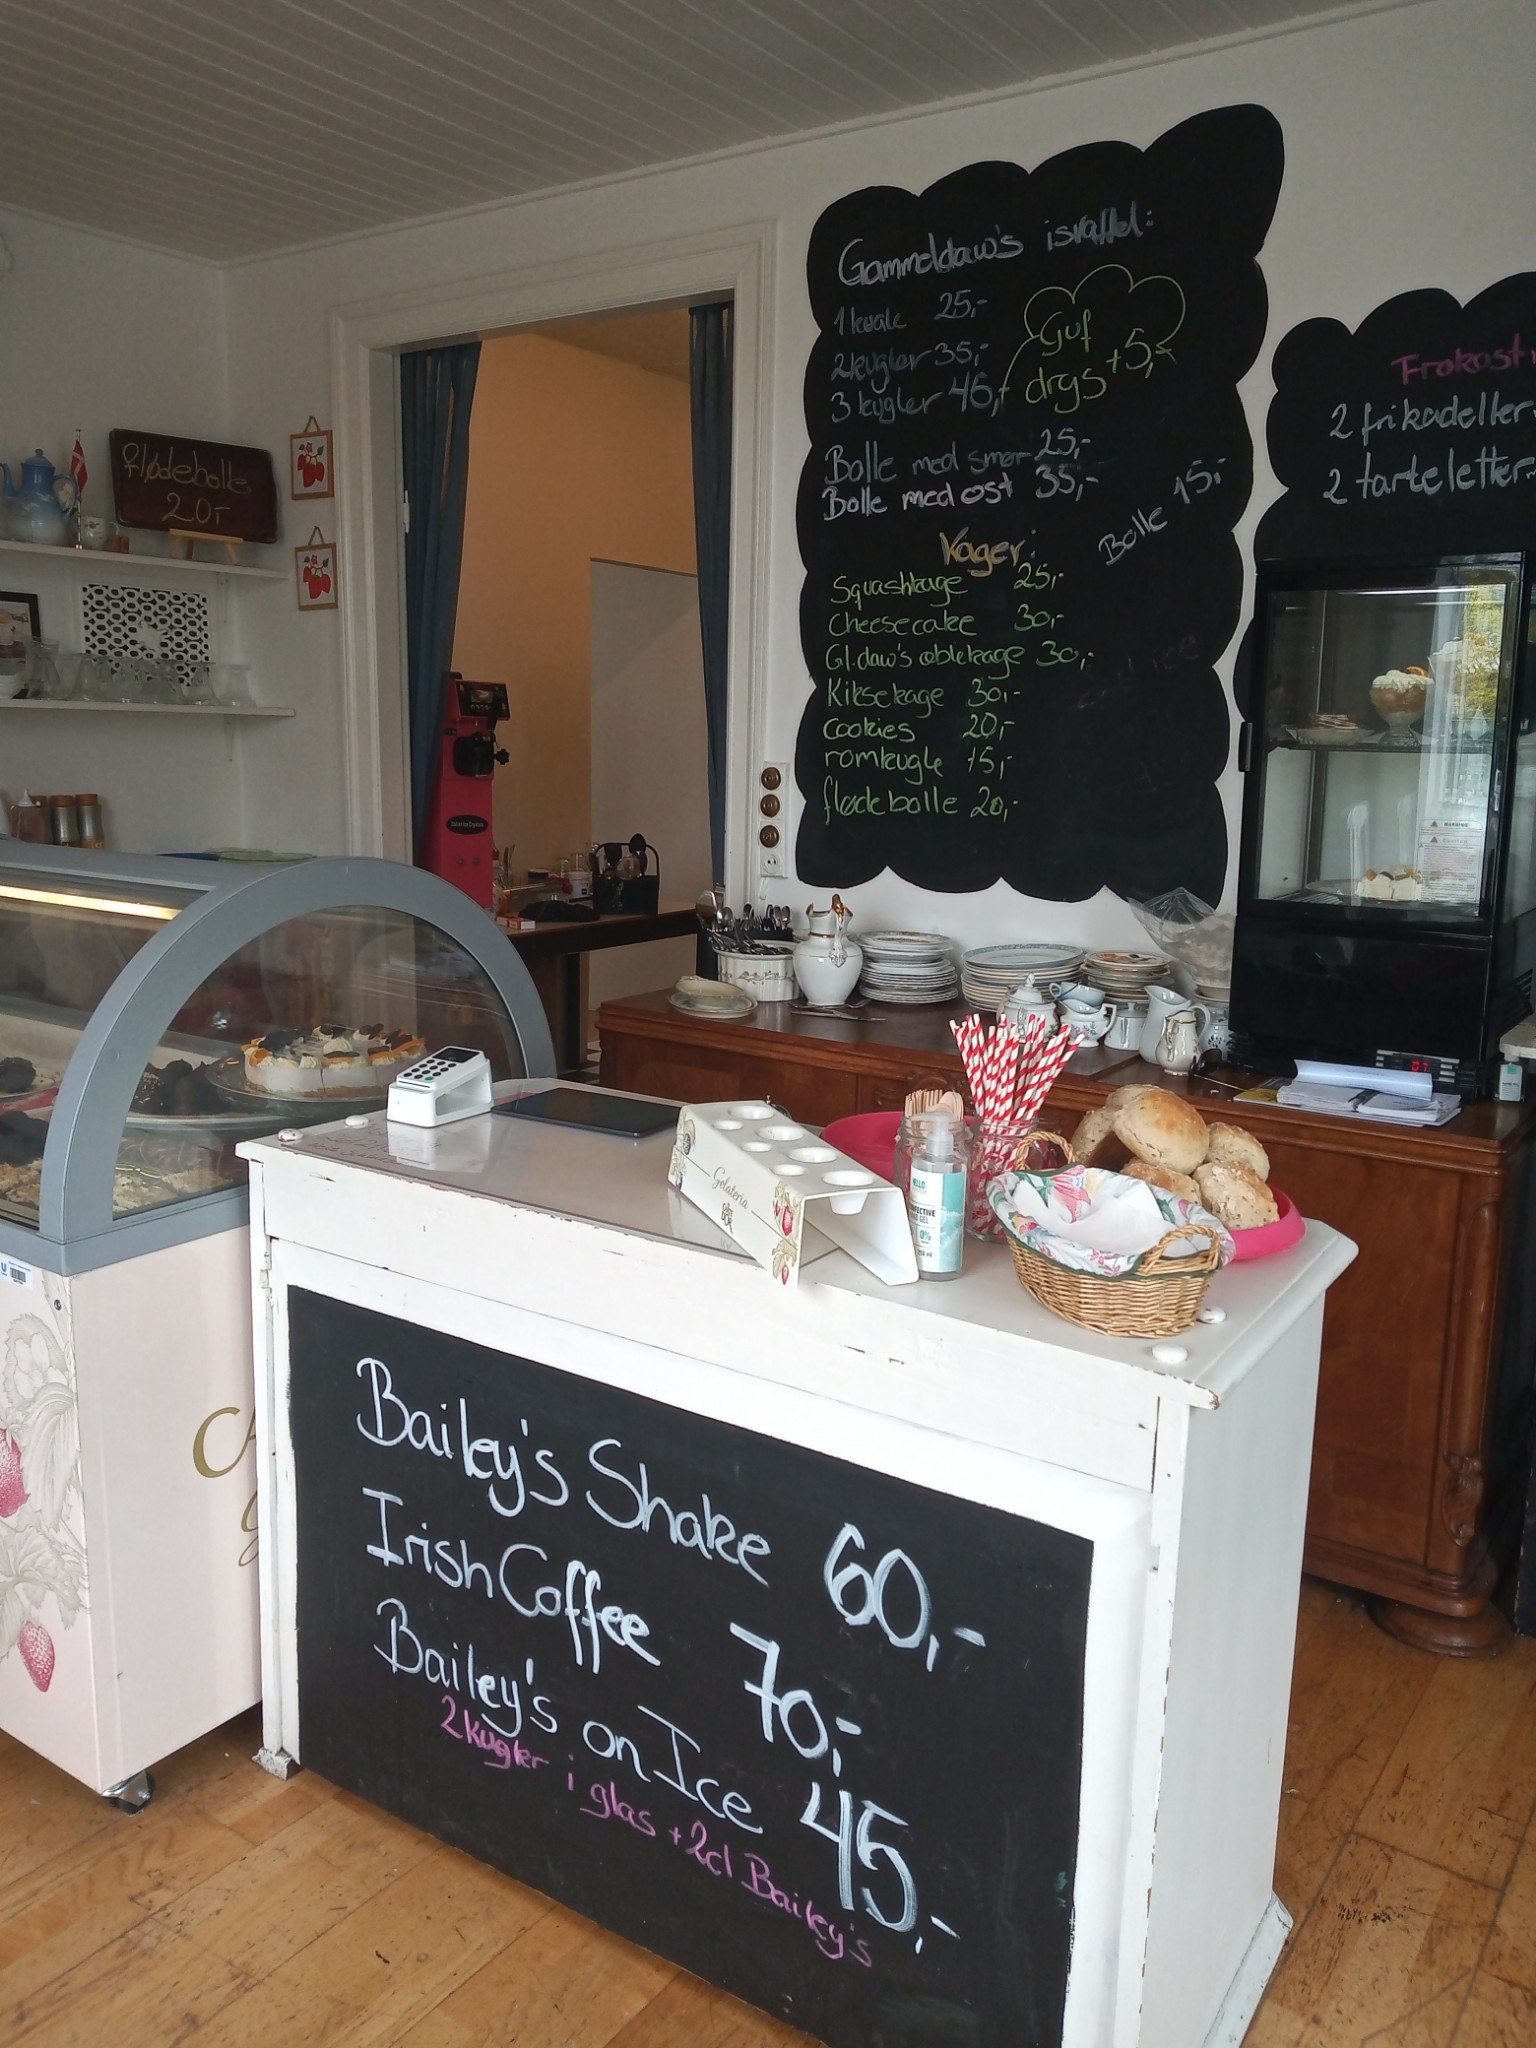 Gammeldaw's isvaffel:
1 kugle 25,-
2 kugler 35,-
3 kugler 45,-
Guf
drys +5,-
Bolle med smør 25,-
Bolle med ost 35,-
Bolle 15,-
Kager:
Squashkage 25,-
Cheesecake 30,-
Gl.daw's æblekage 30,-
Kiksekage 30,-
cookies 20,-
romkugle 15,-
flødebolle 20,-
Frokost
2 frikadeller
2 tarteletter
flødebolle
20,-
WARNING
Gelateria
HELLO.
0%
Bailey's Shake 60,-
Irish Coffee 70,-
Bailey's on Ice 45,-
2 kugler i glas + 2cl Bailey's